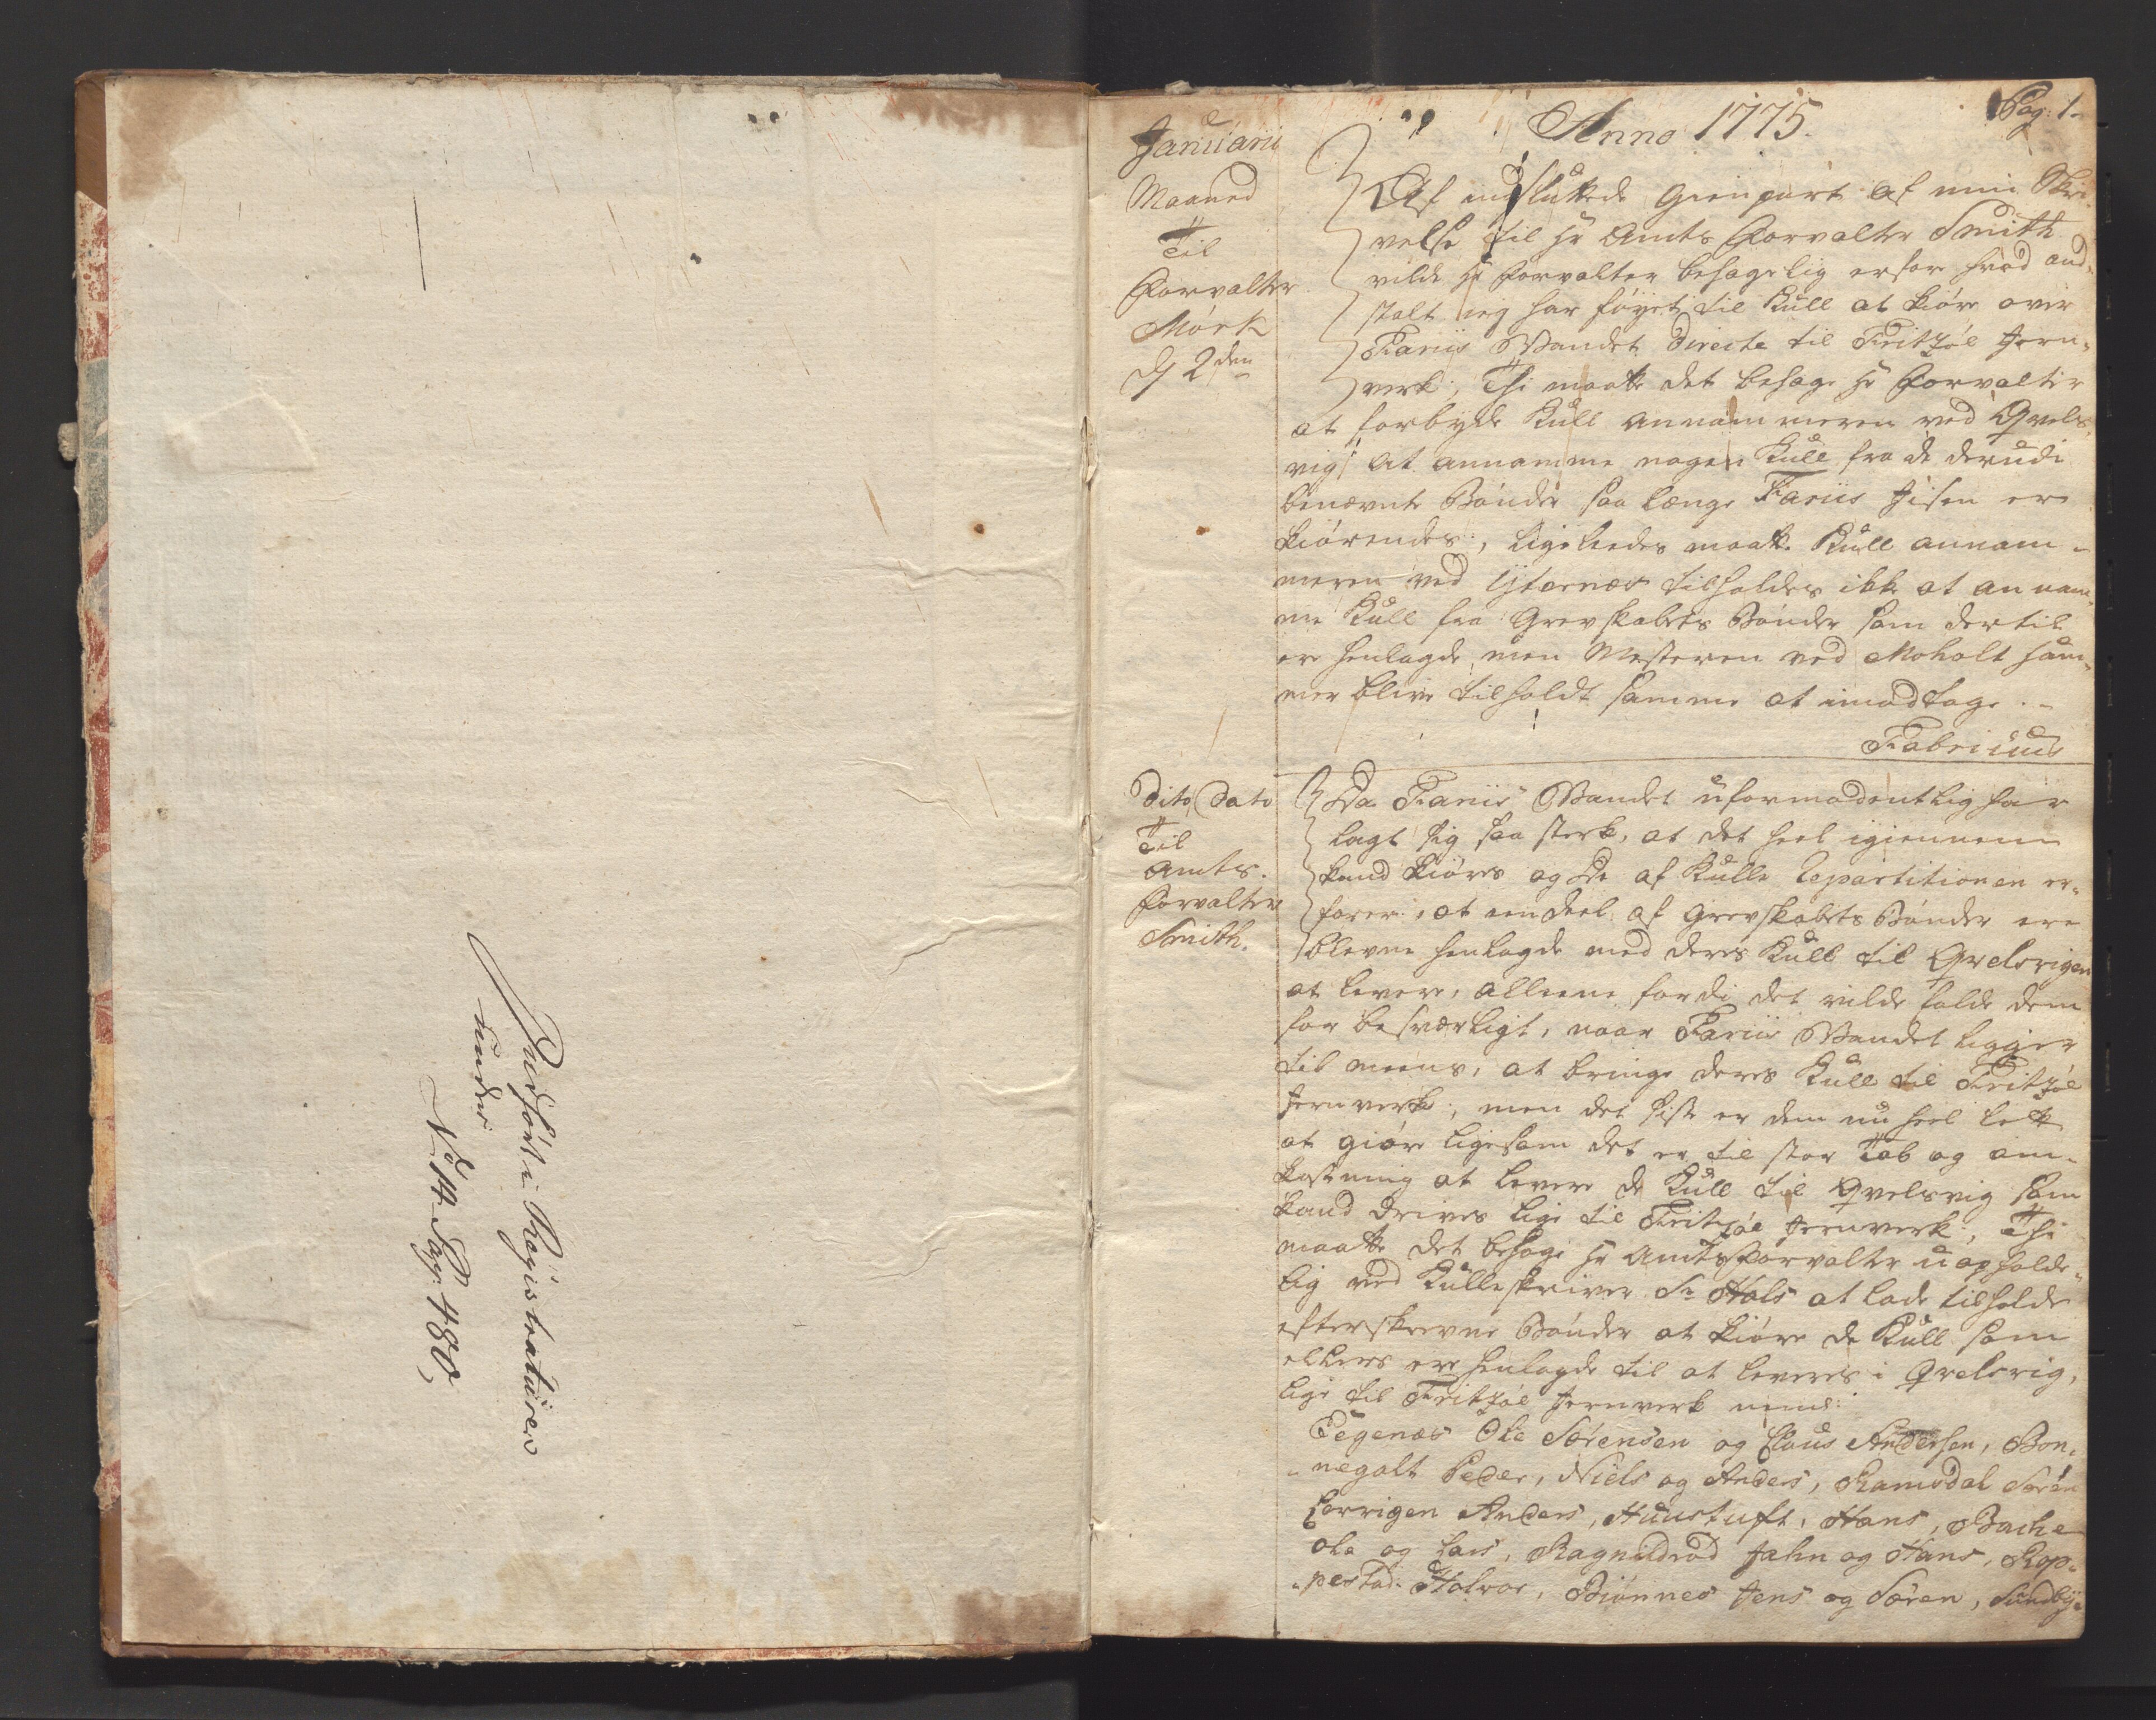 Indført i Registraturen
under
No 14 Pag: 480,
Pag: 1-
Anno 1775.
Januarii
Maaned
Til
Forvalter
Mörk
d 2den
Af indsluttede Gienpart af min Skri-
velse til Hr Amts Forvalter Smith
vilde Hr Forvalter behagelig erfare hvad and-
stalt jeg har føyet til Kull at kiöre over
Fariis Wandet directe til Fritzöe Jern-
verk; Thi maatte det behage Hr Forvalter
at forbyde Kull annammeren ved Qvels-
vig, at annamme nogen Kull fra de derudi
benævnte Bönder saa længe Fariis Jisen er
kiörendes, ligeledes maatte Kull annam-
meren ved Ytternæs tilholdes ikke at annam-
me Kull fra Grevskabets Bönder som dertil
ere henlagde, men Mesteren ved Moholt Ham-
mer blive tilholdt samme at imodtage.-
Fabritius
Dito Dato
Til
Amts-
Forvalter
Smith.
Da Fariis Wandet uformodentlig har
lagt sig saa sterk, at det heel igiennem
kand kiöres og De af Kulle Repartitionen er-
farer, at een deel af Grevskabets Bönder ere
blevne henlagde med deres Kull til Qvelsvigen
at levere, alleene fordi det vilde falde dem
for besværligt, naar Fariis Wandet ligger
til meens, at bringe deres Kull til Fritzöe
Jernverk; men det siste er dem nu heel let
at giöre ligesom det er til stor Tab og om-
kostning at levere de Kull til Qvelsvig som
kand drives lige til Fritzöe Jernverk, Thi
maatte det behage Hr Amtsforvalter uopholde-
lig ved Kulleskriver Sr Hals at lade tilholde
efterskrevne Bönder at kiöre de Kull som
ellers ere henlagde til at leveres i Qvelsvig,
lige til Fritzöe Jernverk neml:
Tegenæs Ole Sörensen og Claus Andersen, Bon-
negalt Peder, Niels og Anders, Ramsdal Sören
Corrigen Anders, Huustuft, Hans, Bache
Ole og Lars, Ragnildröd Jahn og Hans, Rop-
pestad Halvor, Biönnes Jens og Sören, Sundby-